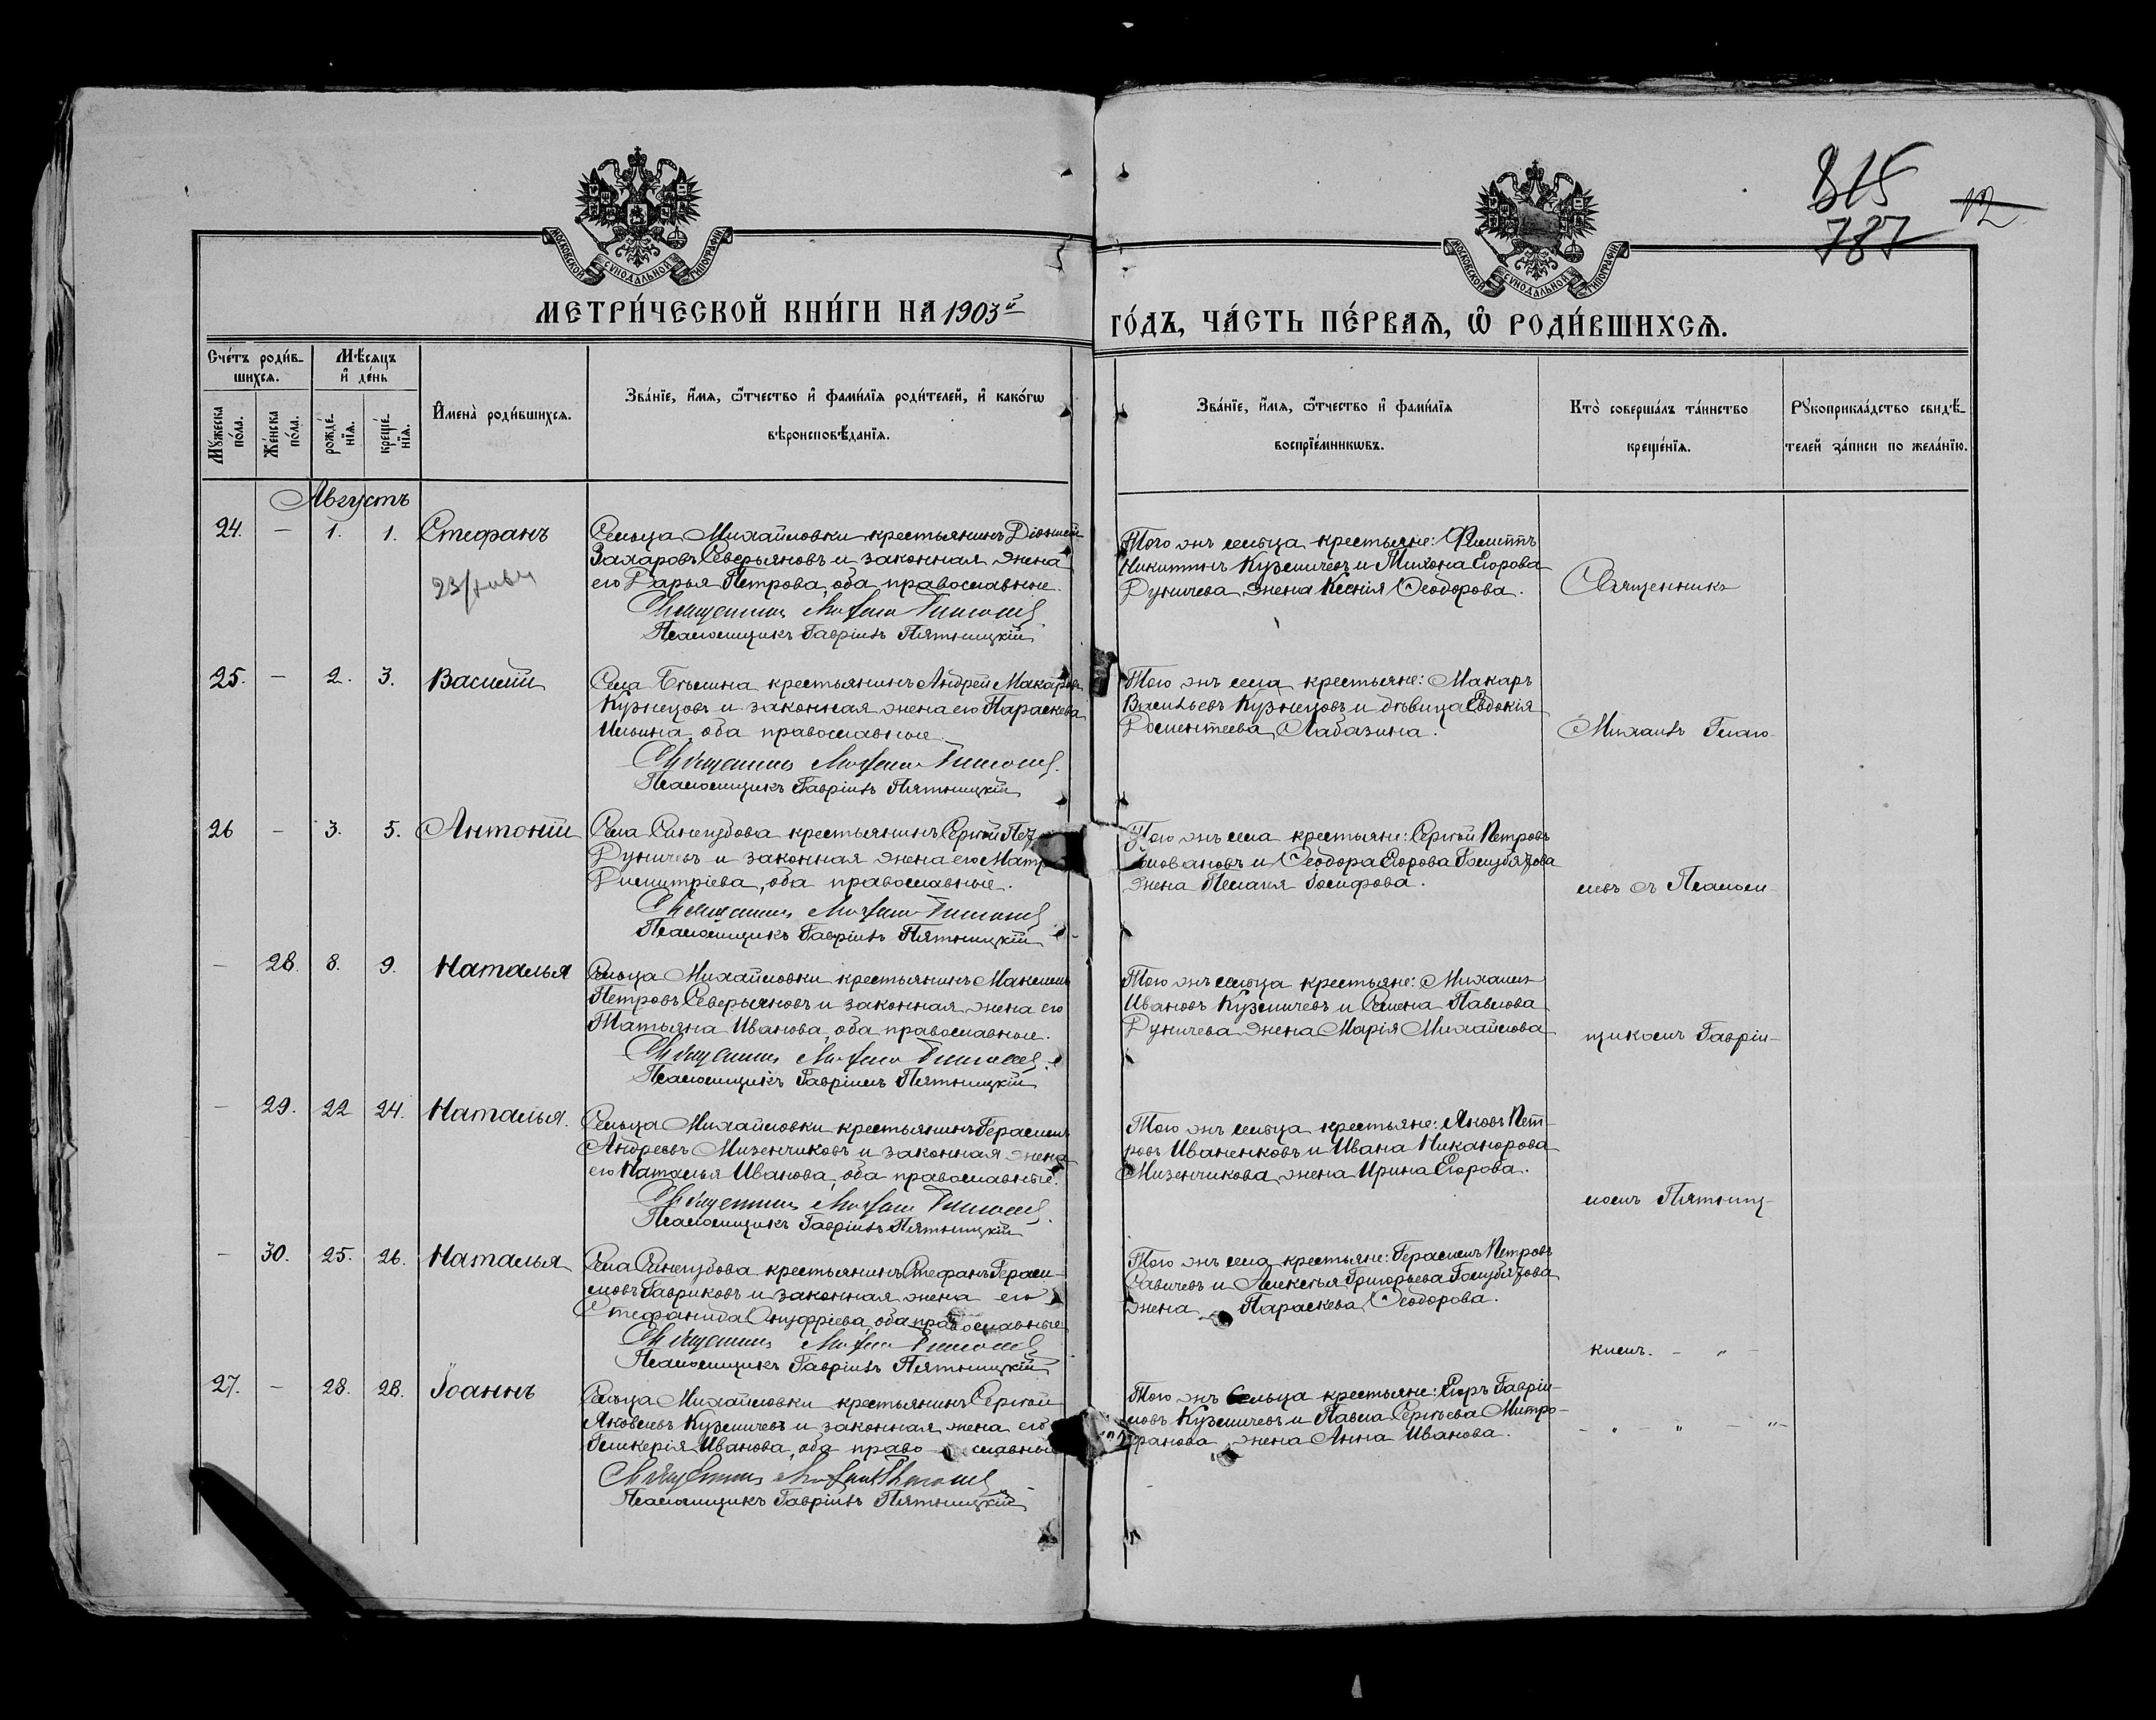 815
787
12
МОСКОВСКОЙ СУНОДАЛЬНОЙ ТИПОГРАФІИ
МОСКОВСКОЙ СУНОДАЛЬНОЙ ТИПОГРАФІИ
МЕТРИ́ЧЕСКОЙ КНИ́ГИ НА 1903й
ГО́ДЪ, ЧА́СТЬ ПЕ́РВАѦ, Ѡ҆ РОДИ́ВШИХСѦ.
Сче́тъ роди́в-
шихсѧ.
Мѣ́сяцъ
и҆ де́нь
Мꙋ́жеска по́ла.
Же́нска по́ла.
рожде́-нїѧ.
креще́-нїѧ.
И҆мена̀ роди́вшихсѧ.
Зва́нїе, и҆́мѧ, ѻ҆́тчество и҆ фами́лїѧ роди́телей, и҆ како́гѡ
вѣроисповѣ́данїѧ.
Зва́нїе, и҆́мѧ, ѻ҆́тчество и҆ фами́лїѧ
воспрїе́мникѡвъ.
Кто̀ соверша́лъ та́инство
креще́нїѧ.
Рꙋкоприкла́дство свидѣ́-
телей за́писи по жела́нїю.
Августъ
24. — 1. 1. Стефанъ
Сельца Михайловки крестьянинъ Діонисій
Захаровъ Северьяновъ и законная жена
его Дарья Петрова, оба православные.
Священникъ Михаилъ
Псаломщикъ Гавріилъ Пятницкій
Того жъ сельца крестьяне: Филиппъ
Никитинъ Кузьмичевъ и Тихона Егорова
Руничева жена Ксенія Ѳеодорова.
Священникъ
25. — 2. 3. Василій
Села Бѣлина крестьянинъ Андрей Макаровъ
Кузнецовъ и законная жена его Параскева
Ильина, оба православные.
Священникъ Михаилъ
Псаломщикъ Гавріилъ Пятницкій
Того жъ села крестьяне: Макаръ
Васильевъ Кузнецовъ и дѣвица Евдокія
Дометеева Лабазина.
Михаилъ Глаго-
26 — 3. 5. Антоній
Села Синезубова крестьянинъ Сергѣй Пет
Руничевъ и законная жена его Матр
Димитріева, оба православные.
Священникъ Михаилъ
Псаломщикъ Гавріилъ Пятницкій
Того жъ села крестьяне: Сергѣй Петровъ
и Ѳеодора Егорова Голубятова
жена Пелагія Іосифова.
левъ съ Псалом-
— 28. 8. 9. Наталья
Сельца Михайловки крестьянинъ Максимъ
Петровъ Северьяновъ и законная жена его
Татьяна Иванова, оба православные.
Священникъ Михаилъ
Псаломщикъ Гавріилъ Пятницкій
Того жъ сельца крестьяне: Михаилъ
Ивановъ Кузьмичевъ и Семена Павлова
Руничева жена Марія Михайлова
щикомъ Гаврі-
— 29. 22 24. Наталья.
Сельца Михайловки крестьянинъ Герасимъ
Андреевъ Мизенчиковъ и законная жена
его Наталья Иванова, оба православные.
Священникъ Михаилъ
Псаломщикъ Гавріилъ Пятницкій
Того жъ сельца крестьяне: Яковъ Пет-
ровъ Иваненковъ и Ивана Никанорова
Мизенчикова жена Ирина Егорова.
ломъ Пятниц-
— 30. 25. 26. Наталья
Села Синезубова крестьянинъ Стефанъ Гераси-
мовъ Гавриковъ и законная жена его
Стефанида Онуфріева, оба православные
Священникъ Михаилъ
Псаломщикъ Гавріилъ Пятницкій
Того жъ села крестьяне: Герасимъ Петровъ
Савичевъ и Алексѣя Григорьева Голубятова
жена Параскева Ѳеодорова.
кимъ. - „ -
27. — 28. 28. Іоаннъ
Сельца Михайловки крестьянинъ Сергѣй
Яковлевъ Кузьмичевъ и законная жена его
Гликерія Иванова, оба православные
Священникъ Михаилъ
Псаломщикъ Гавріилъ Пятницкій
Того жъ сельца крестьяне: Егоръ Гаврі-
ловъ Кузьмичевъ и Павла Сергѣева Митро-
фанова жена Анна Иванова.
- „ - „ - „ -